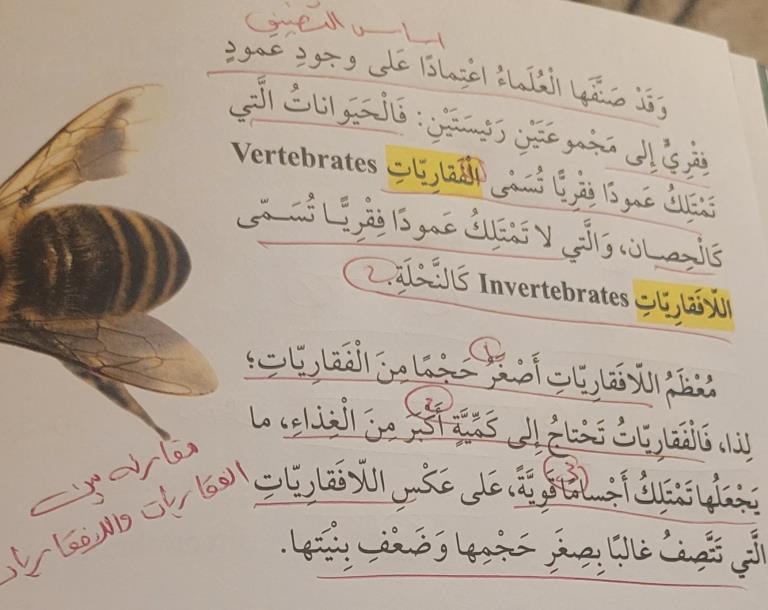 اساس التصنيف
وَقَدْ صَنَّفَها الْعُلَماءُ اعْتِمادًا عَلى وجودِ عَمودٍ
فِقْرِيٍّ إِلى مَجْموعَتَيْنِ رَئيسَتَيْنِ: فَالْحَيَواناتُ الَّتي
تَمْتَلِكُ عَمودًا فِقْرِيًّا تُسَمّى الْفَقارِيّاتِ Vertebrates
كَالْحِصانِ، وَالَّتي لا تَمْتَلِكُ عَمودًا فِقْرِيًّا تُسَمّى
اللّافَقارِيّاتِ Invertebrates كَالنَّحْلَةِ.
مُعْظَمُ اللّافَقارِيّاتِ أَصْغَرُ حَجْمًا مِنَ الْفَقارِيّاتِ؛
لِذا، فَالْفَقارِيّاتُ تَحْتاجُ إِلى كَمِّيَّةٍ أَكْبَرَ مِنَ الْغِذاءِ، ما
يَجْعَلُها تَمْتَلِكُ أَجْسامًا قَوِيَّةً، عَلى عَكْسِ اللّافَقارِيّاتِ
الَّتي تَتَّصِفُ غالِبًا بِصِغَرِ حَجْمِها وَضَعْفِ بِنْيَتِها.
مقارنه بين
الفقاريات واللافقاريات